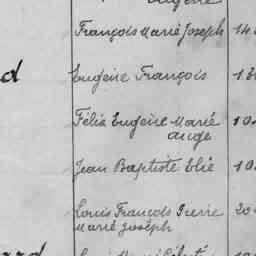 Eugène
François Marie Joseph 14
d Eugène François 13
Félix Eugène Marie 10
ange
Jean Baptiste Elie 10
Louis François Pierre 20
Marie Joseph
ard